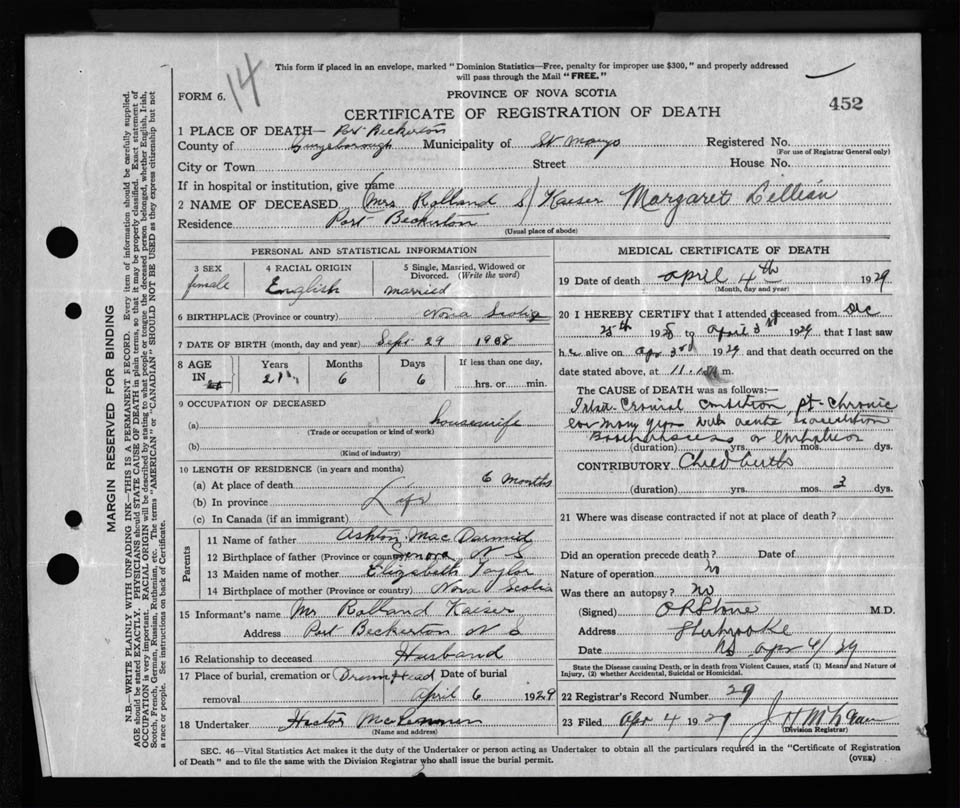 This form if placed in an envelope, marked "Dominion Statistics—Free, penalty for improper use $300," and properly addressed
will pass through the Mail "FREE."
14
FORM 6.
PROVINCE OF NOVA SCOTIA
452
CERTIFICATE OF REGISTRATION OF DEATH
1 PLACE OF DEATH— Port Beckerton
County of Guysborough Municipality of St Marys Registered No.
(For use of Registrar General only)
City or Town Street House No.
If in hospital or institution, give name
2 NAME OF DECEASED (Mrs Rolland S) Kaiser Margaret Lillian
Residence Port Beckerton
(Usual place of abode)
PERSONAL AND STATISTICAL INFORMATION
3 SEX
female
4 RACIAL ORIGIN
English
5 Single, Married, Widowed or
Divorced. (Write the word)
married
6 BIRTHPLACE (Province or country) Nova Scotia
7 DATE OF BIRTH (month, day and year) Sept 29 1908
8 AGE
IN
Years
21
Months
6
Days
6
If less than one day,
hrs. or min.
9 OCCUPATION OF DECEASED
(a) housewife
(Trade or occupation or kind of work)
(b)
(Kind of industry)
10 LENGTH OF RESIDENCE (in years and months)
(a) At place of death 6 months
(b) In province Life
(c) In Canada (if an immigrant)
Parents
11 Name of father Ashton MacDarmid
12 Birthplace of father (Province or country) Sonora N S
13 Maiden name of mother Elizabeth Taylor
14 Birthplace of mother (Province or country) Nova Scotia
15 Informant's name Mr Rolland Kaiser
Address Port Beckerton N S
16 Relationship to deceased Husband
17 Place of burial, cremation or Drum Head Date of burial
removal April 6 1929
18 Undertaker Hector
(Name and address)
MEDICAL CERTIFICATE OF DEATH
19 Date of death April 4th 1929
(Month, day and year)
20 I HEREBY CERTIFY that I attended deceased from Dec
25th 1928 to April 3rd 1929 that I last saw
her alive on Apr 3rd 1929 and that death occurred on
the date stated above, at 11 m.
The CAUSE OF DEATH was as follows:—
Cranial Condition Chronic
for many yrs with acute
or
(duration) yrs. mos. dys.
CONTRIBUTORY Childbirth
(duration) yrs. mos. 3 dys.
21 Where was disease contracted if not at place of death?
Did an operation precede death? Date of
Nature of operation No
Was there an autopsy? No
(Signed) M.D.
Address Sherbrooke
Date NS Apr 4/29
State the Disease causing Death, or in death from Violent Causes, state (1) Means and Nature of
Injury, (2) whether Accidental, Suicidal or Homicidal.
22 Registrar's Record Number 29
23 Filed Apr 4 1929
(Division Registrar)
SEC. 46—Vital Statistics Act makes it the duty of the Undertaker or person acting as Undertaker to obtain all the particulars required in the "Certificate of Registration
of Death" and to file the same with the Division Registrar who shall issue the burial permit.
(OVER)
MARGIN RESERVED FOR BINDING
N.B.—WRITE PLAINLY WITH UNFADING INK—THIS IS A PERMANENT RECORD. Every item of information should be carefully supplied.
AGE should be stated EXACTLY. PHYSICIANS should STATE CAUSE OF DEATH in plain terms, so that it may be properly classified. Exact statement of
OCCUPATION is very important. RACIAL ORIGIN will be described by stating to what people or tongue the deceased person belonged, whether English, Irish,
Scotch, French, German, Russian, Ruthenian, etc. The terms "AMERICAN" or "CANADIAN" SHOULD NOT BE USED as they express citizenship but not
a race or people. See instructions on back of Certificate.